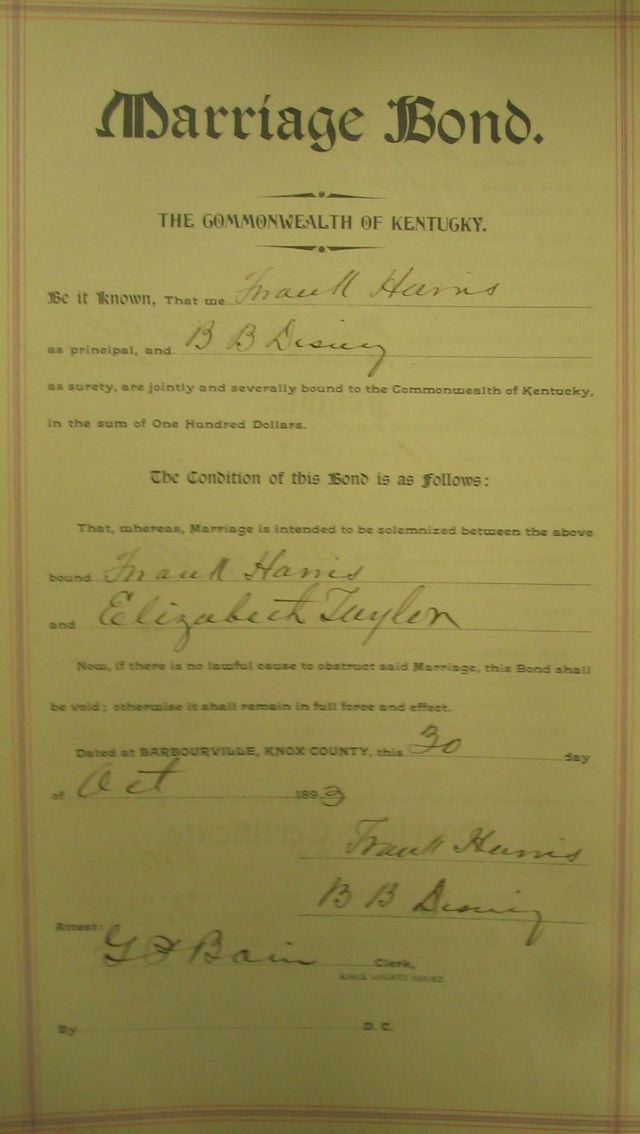 Marriage Bond.
THE COMMONWEALTH OF KENTUCKY.
Be it Known, That we Frank Harris
as principal, and B B Disney
as surety, are jointly and severally bound to the Commonwealth of Kentucky,
in the sum of One Hundred Dollars.
The Condition of this Bond is as Follows:
That, whereas, Marriage is intended to be solemnized between the above
bound Frank Harris
and Elizabeth Taylor
Now, if there is no lawful cause to obstruct said Marriage, this Bond shall
be void; otherwise it shall remain in full force and effect.
Dated at BARBOURVILLE, KNOX COUNTY, this 30 day
of Oct 1893
Frank Harris
B B Disney
Attest:
G F Bain Clerk,
KNOX COUNTY COURT.
By D. C.